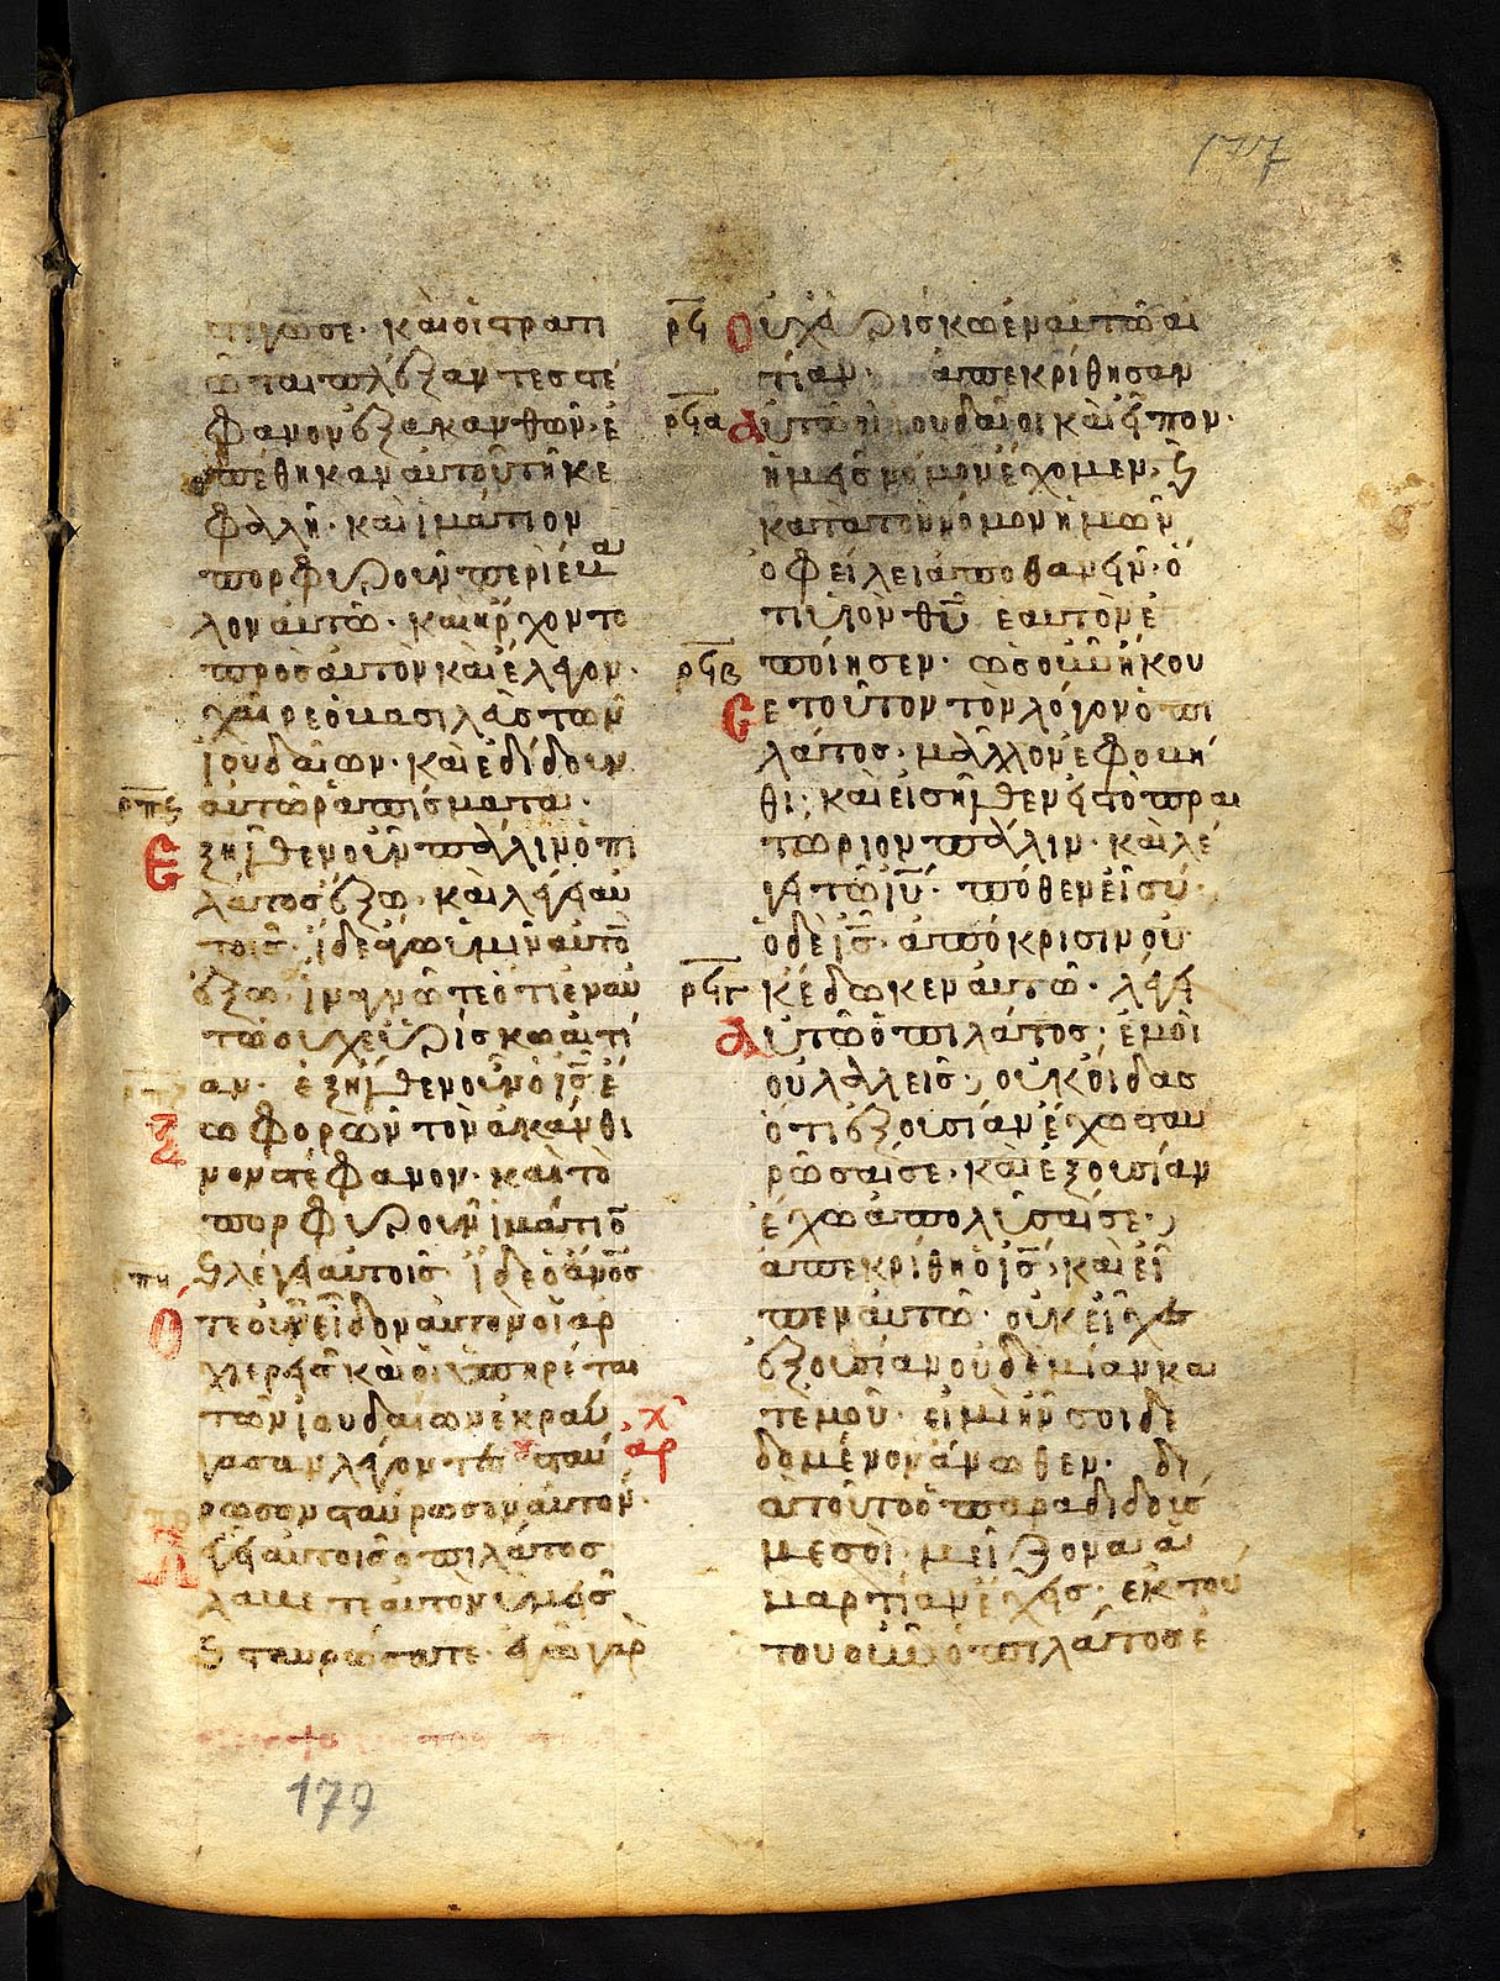 177
τίγωσε· καὶ οἱ στρατι
ῶται πλέξαντες στέ
φανον ἐξ ἀκανθῶν· ἐ
πέθηκαν αὐτοῦ τῆ κε
φαλῆ· καὶ ἱμάτιον
πορφυροῦν περιέβα
λον αὐτῶ· καὶ ἤρχοντο
πρὸς αὐτὸν καὶ ἔλεγον·
χαῖρε ὁ βασιλεὺς τῶν
ἰουδαίων· καὶ ἐδίδουν
αὐτῶ ῥαπίσματα·
ἐξῆλθεν οὖν πάλιν ὁ πι
λάτος ἔξω· καὶ λέγει αὐ
τοῖς· ἴδε ἄγω ὑμῖν αὐτὸ̅
ἔξω· ἵνα γνῶτε ὅτι ἐν αὐ
τῶ οὐχ εὑρίσκω αἰτί
αν· ἐξῆλθεν οὖν ὁ ι̅ς̅ ἔ
ξω φορῶν τὸν ἀκάνθι
νον στέφανον· καὶ τὸ
πορφυροῦν ἱμάτιο̅
ϗ λέγει αὐτοῖς ἴδε ὁ α̅ν̅ο̅ς̅
ρπη
ὅτε οὖν εἶδον αὐτὸν οἱ ἀρ
χιερεῖς καὶ οἱ ὑπηρέται
τῶν ἰουδαίων ἐκραύ
γασαν λέγοντες σταύ
ρωσον σταύρωσον αὐτόν·
λέγει αὐτοῖς ὁ πιλάτος
λάβετε αὐτὸν ὑμεῖς
ϗ σταυρώσατε· ἐγὼ γὰρ
179
ρϟ οὐχ εὑρίσκω ἐν αὐτῶ αἰ
τίαν· ἀπεκρίθησαν
ρϟα αὐτῶ οἱ ἰουδαῖοι καὶ εἶπον·
ἡμεῖς νόμον ἔχομεν· ϗ
κατὰ τὸν νόμον ἡμῶν
ὀφείλει ἀποθανεῖν· ὅ
τι υἱὸν θ̅υ̅ ἑαυτὸν ἐ
ρϟβ ποίησεν· ὡς οὖν ἤκου
σε τοῦτον τὸν λόγον ὁ πι
λάτος· μᾶλλον ἐφοβή
θη· καὶ εἰσῆλθεν εἰς τὸ πραι
τώριον πάλιν· καὶ λέ
γει τῶ ι̅υ̅· πόθεν εἶ σύ·
ὁ δὲ ι̅ς̅· ἀπόκρισιν οὐ
ρϟγ κ ἔδωκεν αὐτῶ· λέγει
αὐτῶ ὁ πιλάτος· ἐμοὶ
οὐ λαλεῖς; οὐκ οἶδας
ὅτι ἐξουσίαν ἔχω σταυ
ρῶσαί σε· καὶ ἐξουσίαν
ἔχω ἀπολῦσαί σε;
ἀπεκρίθη ὁ ι̅ς̅· καὶ εἶ
πεν αὐτῶ· οὐκ εἶχες
ἐξουσίαν οὐδεμίαν κα
τ' ἐμοῦ· εἰ μὴ ἦν σοι δε
δομένον ἄνωθεν· δι
ατοῦτο ὁ παραδιδούς
με σοὶ· μείζονα ἁ
μαρτίαν ἔχει· ἐκ τού
του οὖν ὁ πιλάτος ἐ